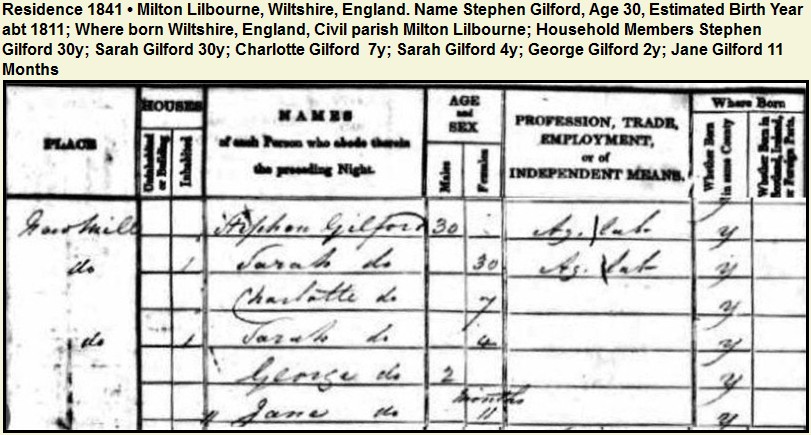 Residence 1841 • Milton Lilbourne, Wiltshire, England. Name Stephen Gilford, Age 30, Estimated Birth Year
abt 1811; Where born Wiltshire, England, Civil parish Milton Lilbourne; Household Members Stephen
Gilford 30y; Sarah Gilford 30y; Charlotte Gilford 7y; Sarah Gilford 4y; George Gilford 2y; Jane Gilford 11
Months
PLACE
HOUSES
Uninhabited or Building
Inhabited
NAMES
of each Person who abode therein
the preceding Night.
AGE
and
SEX
Males
Females
PROFESSION, TRADE,
EMPLOYMENT,
or of
INDEPENDENT MEANS.
Where Born
Whether Born in same County
Whether Born in Scotland, Ireland, or Foreign Parts.
New Mill Stephen Gilford 30 Ag. lab y
do 1 Sarah do 30 Ag. lab y
Charlotte do 7 y
do 1 Sarah do 4 y
George do 2 y
Jane do months 11 y